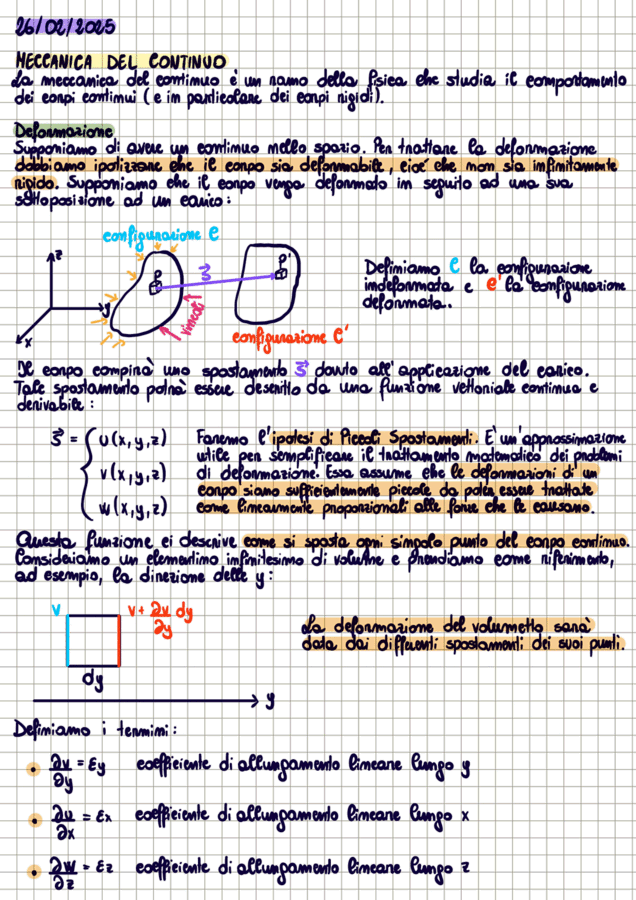 26/02/2025
MECCANICA DEL CONTINUO
La meccanica del continuo è un ramo della fisica che studia il comportamento
dei corpi continui (e in particolare dei corpi rigidi).
Deformazione
Supponiamo di avere un continuo nello spazio. Per trattare la deformazione
dobbiamo ipotizzare che il corpo sia deformabile, cioé che non sia infinitamente
rigido. Supponiamo che il corpo venga deformato in seguito ad una sua
sottoposizione ad un carico:
configurazione C
z
P
S
P'
y
x
vincoli
configurazione C'
Definiamo C la configurazione
indeformata e C' la configurazione
deformata.
Il corpo compirà uno spostamento S dovuto all'applicazione del carico.
Tale spostamento potrà essere descritto da una funzione vettoriale continua e
derivabile:
S = { u(x,y,z)
v(x,y,z)
w(x,y,z)
Faremo l'ipotesi di Piccoli Spostamenti. E' un'approssimazione
utile per semplificare il trattamento matematico dei problemi
di deformazione. Essa assume che le deformazioni di un
corpo siano sufficientemente piccole da poter essere trattate
come linearmente proporzionali alle forze che le causano.
Questa funzione ci descrive come si sposta ogni singolo punto del corpo continuo.
Consideriamo un elementino infinitesimo di volume e prendiamo come riferimento,
ad esempio, la direzione delle y:
v
v + ∂v/∂y dy
dy
y
La deformazione del volumetto sarà
data dai differenti spostamenti dei suoi punti.
Definiamo i termini:
• ∂v/∂y = εy coefficiente di allungamento lineare lungo y
• ∂u/∂x = εx coefficiente di allungamento lineare lungo x
• ∂w/∂z = εz coefficiente di allungamento lineare lungo z